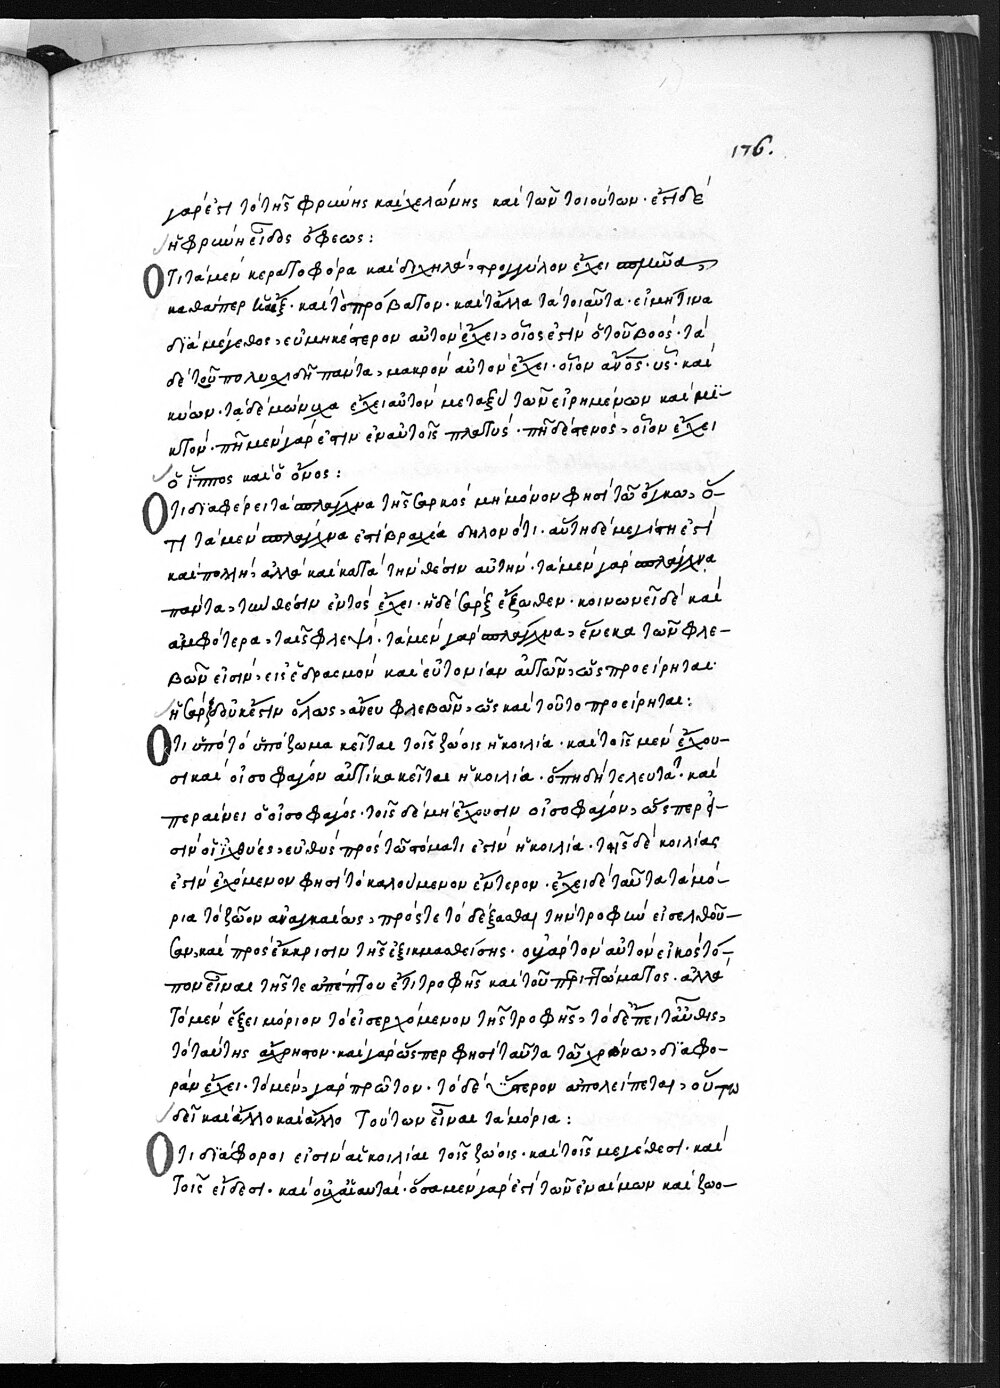 176.
γάρ ἐστι τὸ τῆς φρύνης καὶ χελώνης καὶ τῶν τοιούτων· ἔστι δὲ
ἡ φρύνη εἶδος ὄφεως:
Ὅτι τὰ μὲν κερατοφόρα καὶ δίχηλα, στρογγύλον ἔχει
καθάπερ αἲξ· καὶ τὸ πρόβατον· καὶ τἄλλα τὰ τοιαῦτα· εἰ μή τινα
διὰ μέγεθος, εὐμηκέστερον αὐτὸν ἔχει, οἷος ἐστὶν ὁ τοῦ βοός· τὰ
δὲ τοῦ πολυσχιδῆ πάντα, μακρὸν αὐτὸν ἔχει· οἷον ἄνος· ὗς· καὶ
κύων· τὰ δὲ μώνυχα ἔχει αὐτὸν μεταξὺ τῶν εἰρημένων καὶ μι-
κτόν· πῆ μὲν γάρ ἐστιν ἐν αὐτοῖς πλατύς· πῆ δὲ στενός, οἷον ἔχει
ὁ ἵππος καὶ ὁ ὄνος:
Ὅτι διαφέρει τὰ σπλάγχνα τῆς σαρκὸς μὴ μόνον φησὶ τῶ ὄγκω, ὅ-
τι τὰ μὲν σπλάγχνα ἐστὶ βραχέα δηλονότι· αὕτη δὲ μεγίστη ἐστὶ
καὶ πολλή, ἀλλὰ καὶ κατὰ τὴν θέσιν αὐτήν· τὰ μὲν γὰρ σπλάγχνα
πάντα, τὴν θέσιν ἐντὸς ἔχει· ἡ δὲ σὰρξ ἔξωθεν· κοινωνεῖ δὲ καὶ
ἀμφότερα, ταῖς φλεψί· τὰ μὲν γὰρ σπλάγχνα, ἕνεκα τῶν φλε-
βῶν εἰσίν, εἰς ἑδρασμὸν καὶ εὐτονίαν αὐτῶν, ὡς προείρηται·
ἡ σὰρξ δ' οὐκ ἔστιν ὅλως, ἄνευ φλεβῶν, ὡς καὶ τοῦτο προείρηται:
Ὅτι ὑπὸ τὸ ὑπόζωμα κεῖται τοῖς ζώοις ἡ κοιλία· καὶ τοῖς μὲν ἔχου-
σι καὶ οἰσοφάγον αὐτίκα κεῖται ἡ κοιλία· ὅπη δὴ τελευτᾶ· καὶ
περαίνει ὁ οἰσοφάγος· τοῖς δὲ μὴ ἔχουσιν οἰσοφάγον, ὥσπερ εἰ-
σὶν οἱ ἰχθύες, εὐθὺς πρὸς τῶ στόματι ἐστὶν ἡ κοιλία· τῆς δὲ κοιλίας
ἐστὶν ἐχόμενον φησὶ τὸ καλούμενον ἔντερον· ἔχει δὲ ταῦτα τὰ μό-
ρια τὸ ζῶον ἀναγκαίως, πρός τε τὸ δέξασθαι τὴν τροφὴν εἰσελθοῦ-
σαν, καὶ πρὸς ἔκκρισιν τῆς ἐξικμασθείσης· οὐ γὰρ τὸν αὐτὸν εἰκὸς τό-
πον εἶναι τῆς τε ἀπέπτου ἔτι τροφῆς καὶ τοῦ περιττώματος· ἀλλὰ
τὸ μὲν ἕξει μόριον τὸ εἰσερχόμενον τῆς τροφῆς, τὸ δὲ ἔπειτ' αὖθις,
τὸ ταύτης ἄχρηστον· καὶ γὰρ ὥσπερ φησὶ ταῦτα τῶ χρόνω, διαφο-
ρὰν ἔχει· τὸ μὲν, γὰρ πρῶτον· τὸ δὲ ὕστερον ἀπολείπεται, οὕτω
δεῖ καὶ ἄλλο καὶ ἄλλο τούτων εἶναι τὰ μόρια:
Ὅτι διάφοροι εἰσὶν αἱ κοιλίαι τοῖς ζώοις· καὶ τοῖς μεγέθεσι· καὶ
τοῖς εἴδεσι· καὶ οὐχ αἱ αὐταί· ὅσα μὲν γάρ ἐστι τῶν ἐναίμων καὶ ζωο-